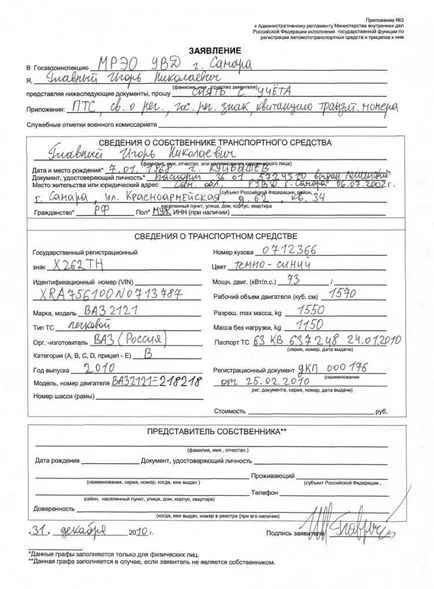 Приложение №2
к Административному регламенту Министерства внутренних дел
Российской Федерации исполнения государственной функции по
регистрации автомототранспортных средств и прицепов к ним
ЗАЯВЛЕНИЕ
В Госавтоинспекцию МРЭО УВД г. Самара
Я, Главный Игорь Николаевич
(фамилия, имя, отчество заявителя)
представляя нижеследующие документы, прошу снять с учёта
Приложения: ПТС, св. о рег., гос. рег. знак, квитанцию транзит. номера
Служебные отметки военного комиссариата
СВЕДЕНИЯ О СОБСТВЕННИКЕ ТРАНСПОРТНОГО СРЕДСТВА
Главный Игорь Николаевич
Дата и место рождения* 7.01.1968 г. КУЙБЫШЕВ
Документ, удостоверяющий личность* Паспорт 36 01 выдан
Место жительства или юридический адрес Сам. обл. г. Самара 06.07.2002 г.
(субъект Российской Федерации,
г. Самара, ул. Красноармейская д. 62, кв. 34
населенный пункт, улица, дом, корпус, квартира)
Гражданство* РФ Пол* МУЖ ИНН (при наличии)
СВЕДЕНИЯ О ТРАНСПОРТНОМ СРЕДСТВЕ
Государственный регистрационный
знак Х262ТН
Идентификационный номер (VIN)
XRA756100N0713787
Марка, модель ВАЗ 2121
Тип ТС легковой
Орг. -изготовитель ВАЗ (Россия)
Категория (А, В, С, D, прицеп - Е) В
Год выпуска
2010
Модель, номер двигателя ВАЗ2121=218218
Номер шасси (рамы)
Номер кузова 0712366
Цвет темно-синий
Мощн. двиг. (кВт/л.с.) 73 /
Рабочий объем двигателя (куб. см) 1570
Разреш. max масса, kg 1550
Масса без нагрузки, kg 1150
Паспорт ТС 63 КВ 637248 24.01.2010
(серия, номер, дата выдачи)
Регистрационный документ ДКП 000176
(наименование
от 25.02.2010
рег. документа, серия, номер, дата выдачи)
Стоимость руб.
ПРЕДСТАВИТЕЛЬ СОБСТВЕННИКА**
(фамилия, имя , отчество)
Дата рождения Документ, удостоверяющий личность
Проживающий
(наименование, серия, номер, когда, кем выдан ) (субъект Российской Федерации ,
Телефон
район, населенный пункт, улица, дом, корпус, квартира)
Доверенность
(когда, кем выдана, номер в реестре (при его наличии)
31. декабря 2010 г. Подпись заявителя
*Данные графы заполняются только для физических лиц.
**Данная графа заполняется в случае, если заявитель не является собственником.